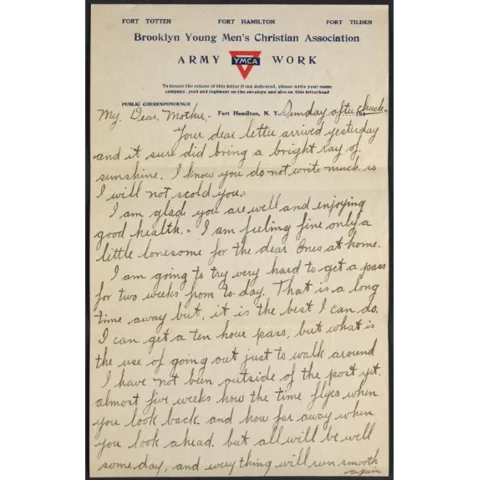 FORT TOTTEN FORT HAMILTON FORT TILDEN
Brooklyn Young Men's Christian Association
ARMY YMCA WORK
To insure the return of this letter if not delivered, please write your name
company, post and regiment on the envelope and also on this letterhead
PUBLIC CORRESPONDENCE
Fort Hamilton, N. Y. Sunday after 191
My Dear Mother.
Your dear letter arrived yesterday
and it sure did bring a bright Ray of
sunshine. I know you do not write much so
I will not scold you.
I am glad you are well and enjoying
good health. I am feeling fine only a
little lonesome for the dear Ones at home.
I am going to try very hard to get a pass
for two weeks from to day. That is a long
time away but, it is the best I can do.
I can get a ten hour pass, but what is
the use of going out just to walk around
I have not been outside of the post yet.
almost five weeks how the time flyes when
you look back. and how far away when
you look ahead. but all will be well
some day, and every thing will run smooth
again